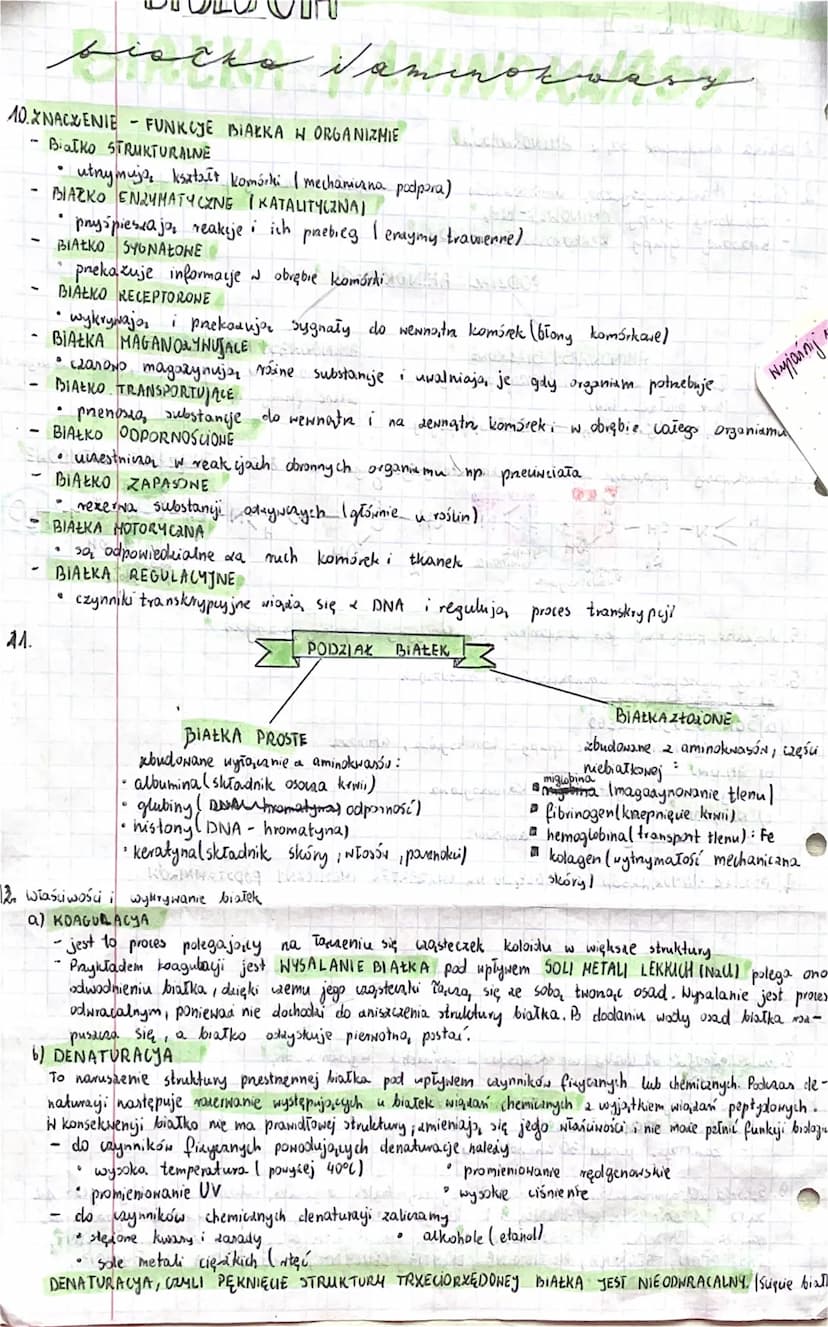 BIOLOGIA
BIAŁKA I AMINOKWASY
białka i aminokwasy
10. ZNACZENIE - FUNKCJE BIAŁKA W ORGANIZMIE
- BiałKO STRUKTURALNE
• utrzymują kształt komórki (mechaniczna podpora)
- BIAŁKO ENZYMATYCZNE (KATALITYCZNA)
• przyśpieszają reakcje i ich przebieg (enzymy trawienne)
- BIAŁKO SYGNAŁOWE
• przekazuje informacje w obrębie komórki
- BIAŁKO RECEPTOROWE
• wykrywają i przekazują sygnały do wewnątrz komórek (błony komórkowe)
- BIAŁKA MAGAZYNUJĄCE
• czasowo magazynują różne substancje i uwalniają je gdy organizm potrzebuje
- BIAŁKO TRANSPORTUJĄCE
• przenoszą substancje do wewnątrz i na zewnątrz komórek i w obrębie całego organizmu
- BIAŁKO ODPORNOŚCIOWE
• uczestniczą w reakcjach obronnych organizmu np. przeciwciała
- BIAŁKO ZAPASOWE
• rezerwa substancji odżywczych (głównie u roślin)
- BIAŁKA MOTORYCZNA
• są odpowiedzialne za ruch komórek i tkanek
- BIAŁKA REGULACYJNE
• czynniki transkrypcyjne wiążą się z DNA i regulują proces transkrypcji
Wyjaśnij
11.
PODZIAŁ BIAŁEK
BIAŁKA PROSTE
zbudowane wyłącznie z aminokwasów:
• albumina (składnik osocza krwi)
• globiny (odporność)
• histony (DNA - hromatyna)
• keratyna (składnik skóry, włosów, paznokci)
BIAŁKA ZŁOŻONE
zbudowane z aminokwasów, części
niebiałkowej:
▪ mioglobina (magazynowanie tlenu)
▪ fibrinogen (krzepnięcie krwi)
▪ hemoglobina (transport tlenu): Fe
▪ kolagen (wytrzymałość mechaniczna
skóry)
12. właściwości i wykrywanie białek
a) KOAGULACJA
- jest to proces polegający na łączeniu się cząsteczek koloidu w większe struktury
- Przykładem koagulacji jest WYSALANIE BIAŁKA pod wpływem SOLI METALI LEKKICH (NaCl) polega ono
odwodnieniu białka, dzięki czemu jego cząsteczki łączą się ze sobą tworząc osad. Wysalanie jest proces
odwracalnym, ponieważ nie dochodzi do zniszczenia struktury białka. Po dodaniu wody osad białka roz-
puszcza się, a białko odzyskuje pierwotną postać.
b) DENATURACJA
To naruszenie struktury przestrzennej białka pod wpływem czynników fizycznych lub chemicznych. Podczas de-
naturacji następuje rozerwanie występujących w białek wiązań chemicznych z wyjątkiem wiązań peptydowych.
W konsekwencji białko nie ma prawidłowej struktury, zmieniają się jego właściwości i nie może pełnić funkcji biologi
- do czynników fizycznych powodujących denaturacje należy
• wysoka temperatura (powyżej 40°C)
• promieniowanie rędgenowskie
• promieniowanie UV
• wysokie ciśnienie
- do czynników chemicznych denaturacji zaliczamy
• stężone kwasy i zasady
• alkohole (etanol)
• sole metali ciężkich (rtęć
DENATURACJA, CZYLI PĘKNIĘCIE STRUKTURY TRZECIORZĘDOWEJ BIAŁKA JEST NIEODWRACALNY. (ścięcie biał